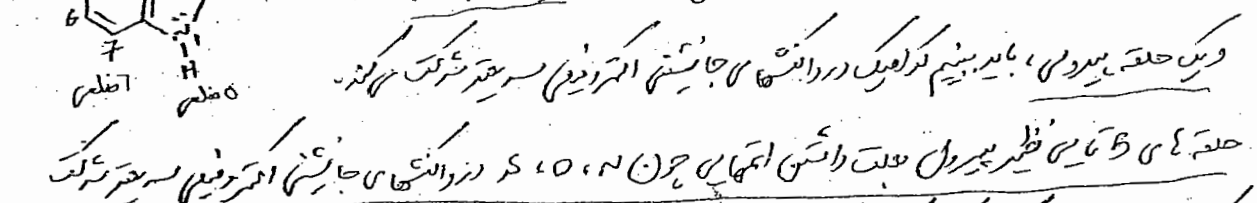 6
7
N
1
H
6 ضلعی
5 ضلعی
و یک حلقه پیرولی، باید ببینیم کدامیک در واکنشهای جانشینی الکتروفیلی سریعتر شرکت می‌کند.
حلقه های 5 تایی نظیر پیرول بعلت داشتن اتمهایی چون N، O، S در واکنشهای جانشینی الکتروفیلی سریعتر شرکت